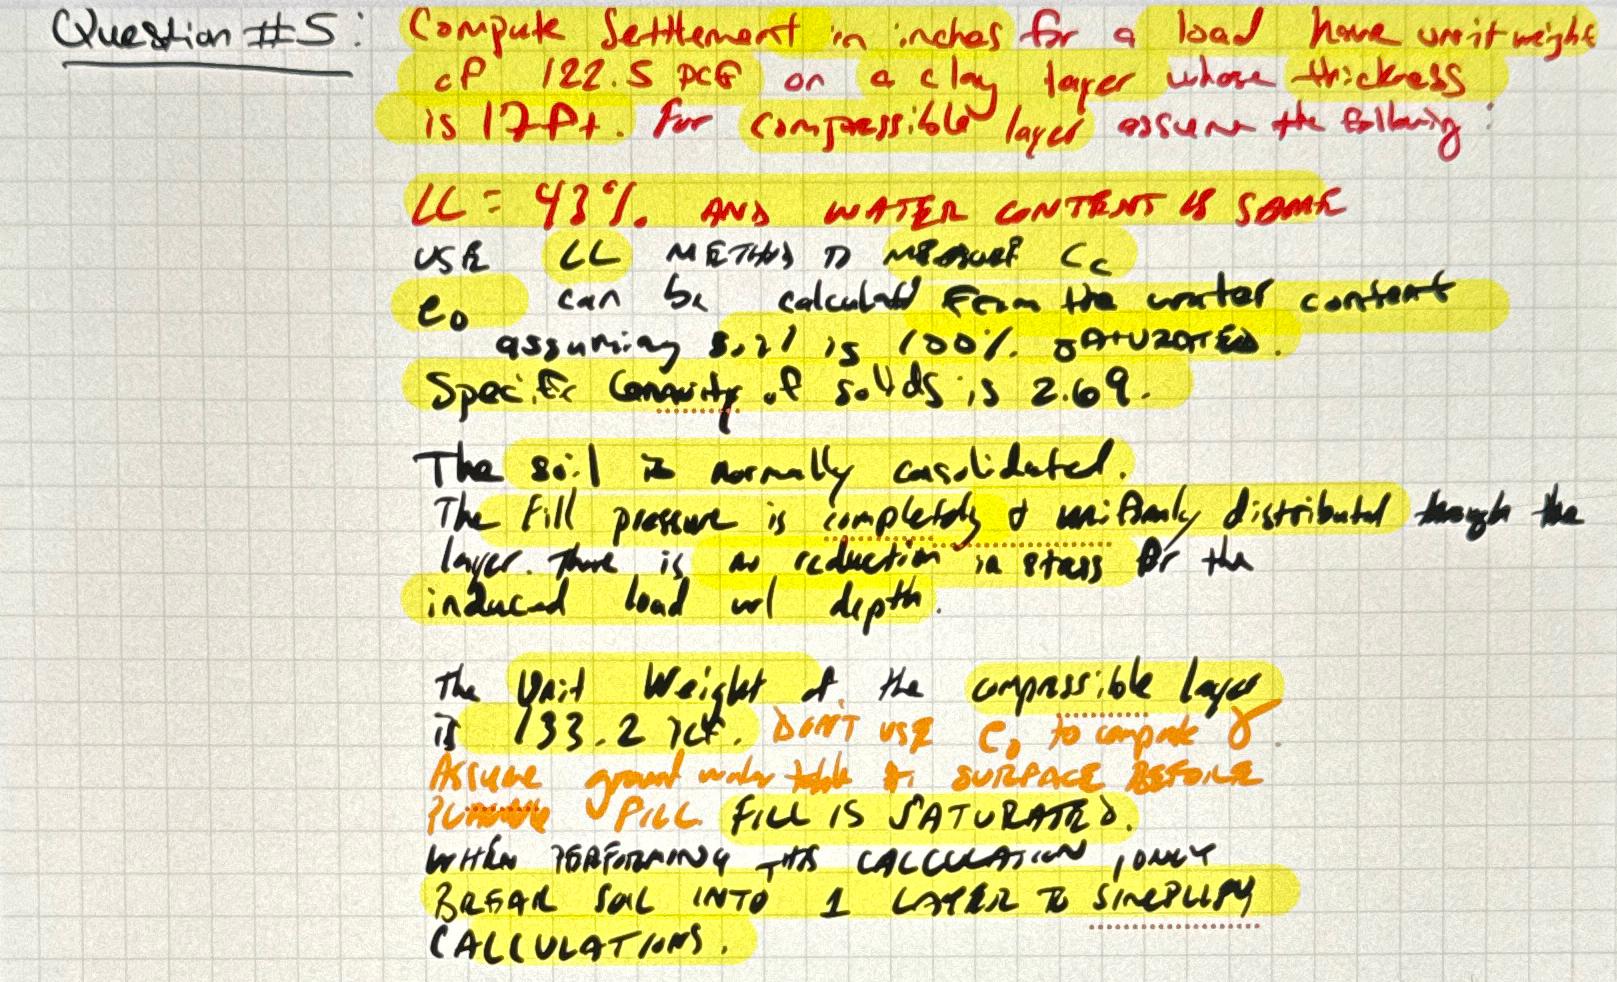 Question #5: Compute Settlement in inches for a load have unit weight
of 122.5 pcf on a clay layer whose thickness
is 17ft. For compressible layer assume the following:
LL = 43% AND WATER CONTENT IS SAME
USE LL METHOD TO MEASURE Cc
e0 can be calculated from the water content
assuming soil is 100% SATURATED.
Specific Gravity of solids is 2.69.
The soil is normally consolidated.
The Fill pressure is completely & uniformly distributed though the
layer. There is no reduction in stress for the
induced load w/ depth.
The Unit Weight of the compressible layer
is 133.2 pcf. DON'T USE e0 to compute γ.
Assume ground water table at SURFACE BEFORE
FILL. FILL IS SATURATED.
WHEN PERFORMING THIS CALCULATION, ONLY
BREAK SOIL INTO 1 LAYER TO SIMPLIFY
CALCULATIONS.